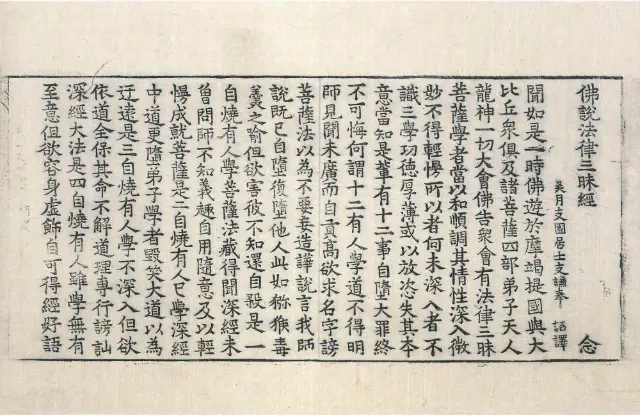 佛說法律三昧經
念
吳月支國居士支謙奉 詔譯
聞如是一時佛遊於摩竭提國與大
比丘衆俱及諸菩薩四部弟子天人
龍神一切大會佛告衆會有法律三昧
菩薩學者當以和順調其情性深入微
妙不得輕慢所以者何未深入者不
識三學功德厚薄或以放恣失其本
意當知是輩有十二事自墮大罪終
不可悔何謂十二有人學道不得明
師見聞未廣而自貢高欲求名字謗
菩薩法以為不要妄造譁說言我師
說旣已自墮復墮他人此如猕猴毒
羹之喻但欲害彼不知還自殺是一
自燒有人學菩薩法藏得聞深經未
曾問師不知義趣自用隨意及以輕
慢成就菩薩是二自燒有人已學深經
中道更墮弟子學者毀笑大道以為
迂遠是三自燒有人學不深入但欲
依道全保其命不解道理專行謗訕
深經大法是四自燒有人雖學無有
至意但欲容身虛飾自可得經好語